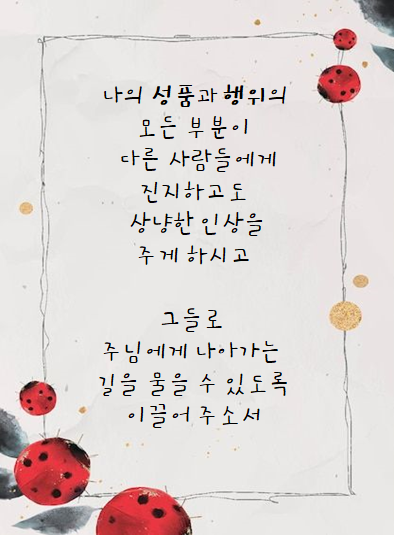 나의 성품과 행위의
모든 부분이
다른 사람들에게
진지하고도
상냥한 인상을
주게 하시고
그들로
주님에게 나아가는
길을 물을 수 있도록
이끌어 주소서